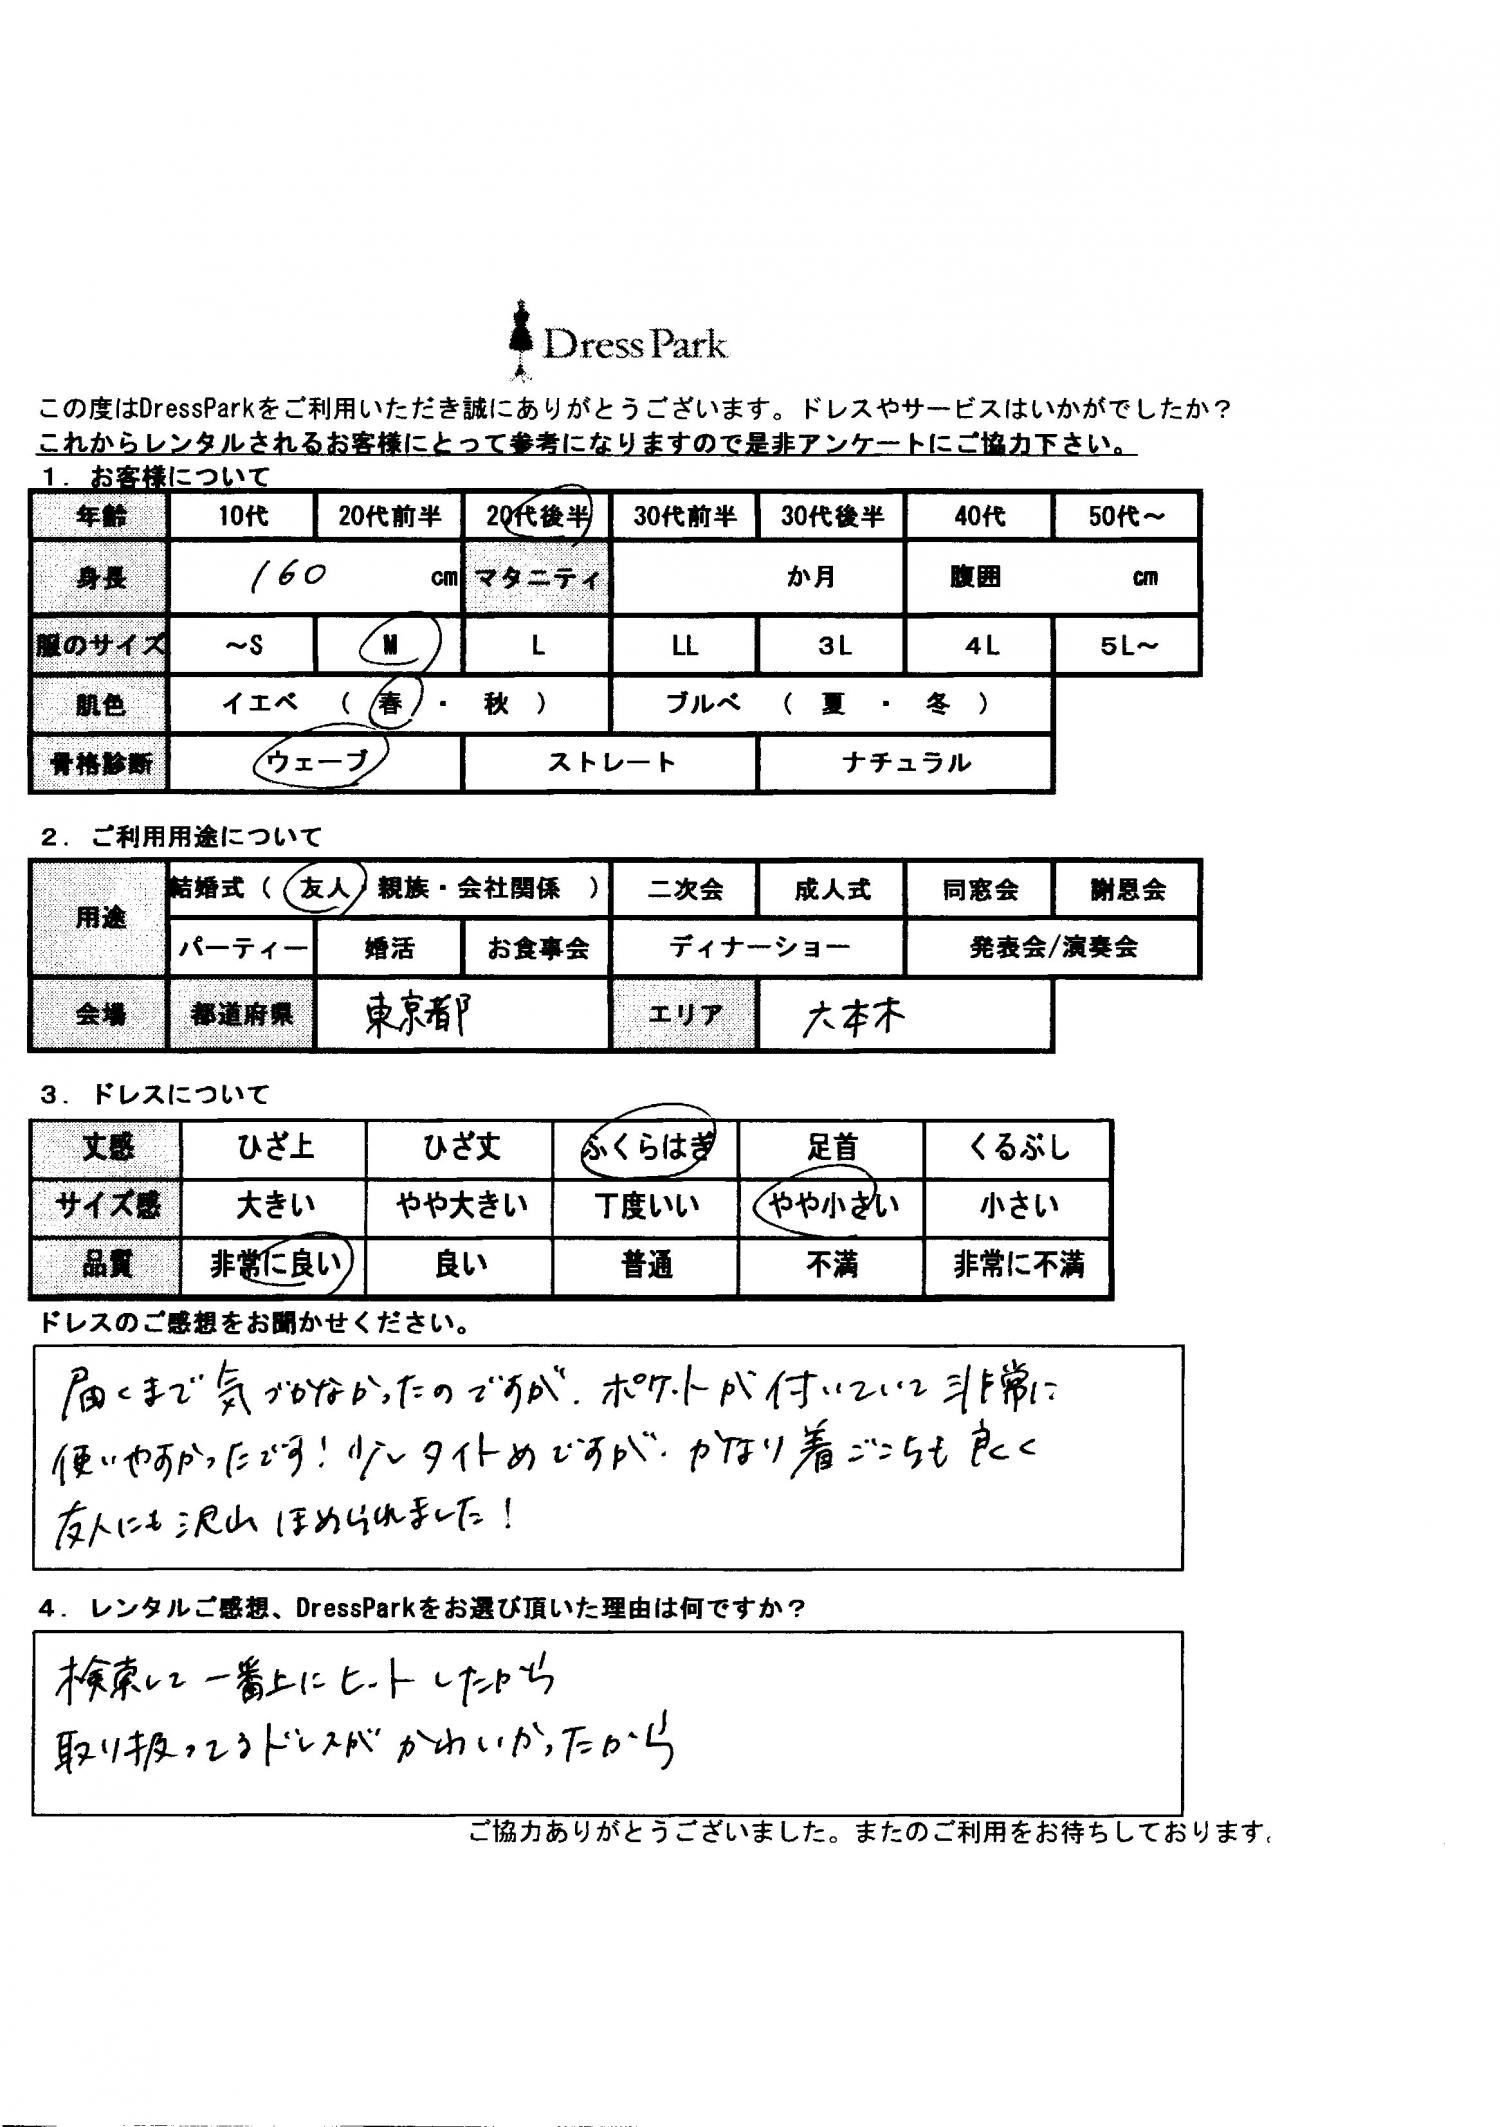 Dress Park
この度はDressParkをご利用いただき誠にありがとうございます。ドレスやサービスはいかがでしたか？
これからレンタルされるお客様にとって参考になりますので是非アンケートにご協力下さい。
１．お客様について
年齢 10代 20代前半 20代後半 30代前半 30代後半 40代 50代～
身長 160 cm マタニティ か月 腹囲 cm
服のサイズ ～S M L LL ３L ４L ５L～
肌色 イエベ （ 春 ・ 秋 ） ブルベ （ 夏 ・ 冬 ）
骨格診断 ウェーブ ストレート ナチュラル
２．ご利用用途について
用途 結婚式（ 友人・親族・会社関係 ） 二次会 成人式 同窓会 謝恩会
パーティー 婚活 お食事会 ディナーショー 発表会/演奏会
会場 都道府県 東京都 エリア 六本木
３．ドレスについて
丈感 ひざ上 ひざ丈 ふくらはぎ 足首 くるぶし
サイズ感 大きい やや大きい 丁度いい やや小さい 小さい
品質 非常に良い 良い 普通 不満 非常に不満
ドレスのご感想をお聞かせください。
届くまで気づかなかったのですが、ポケットが付いていて非常に
使いやすかったです！少しタイトめですが、かなり着ごこちも良く
友人にも沢山ほめられました！
４．レンタルご感想、DressParkをお選び頂いた理由は何ですか？
検索して一番上にヒットしたから
取り扱ってるドレスがかわいかったから
ご協力ありがとうございました。またのご利用をお待ちしております。